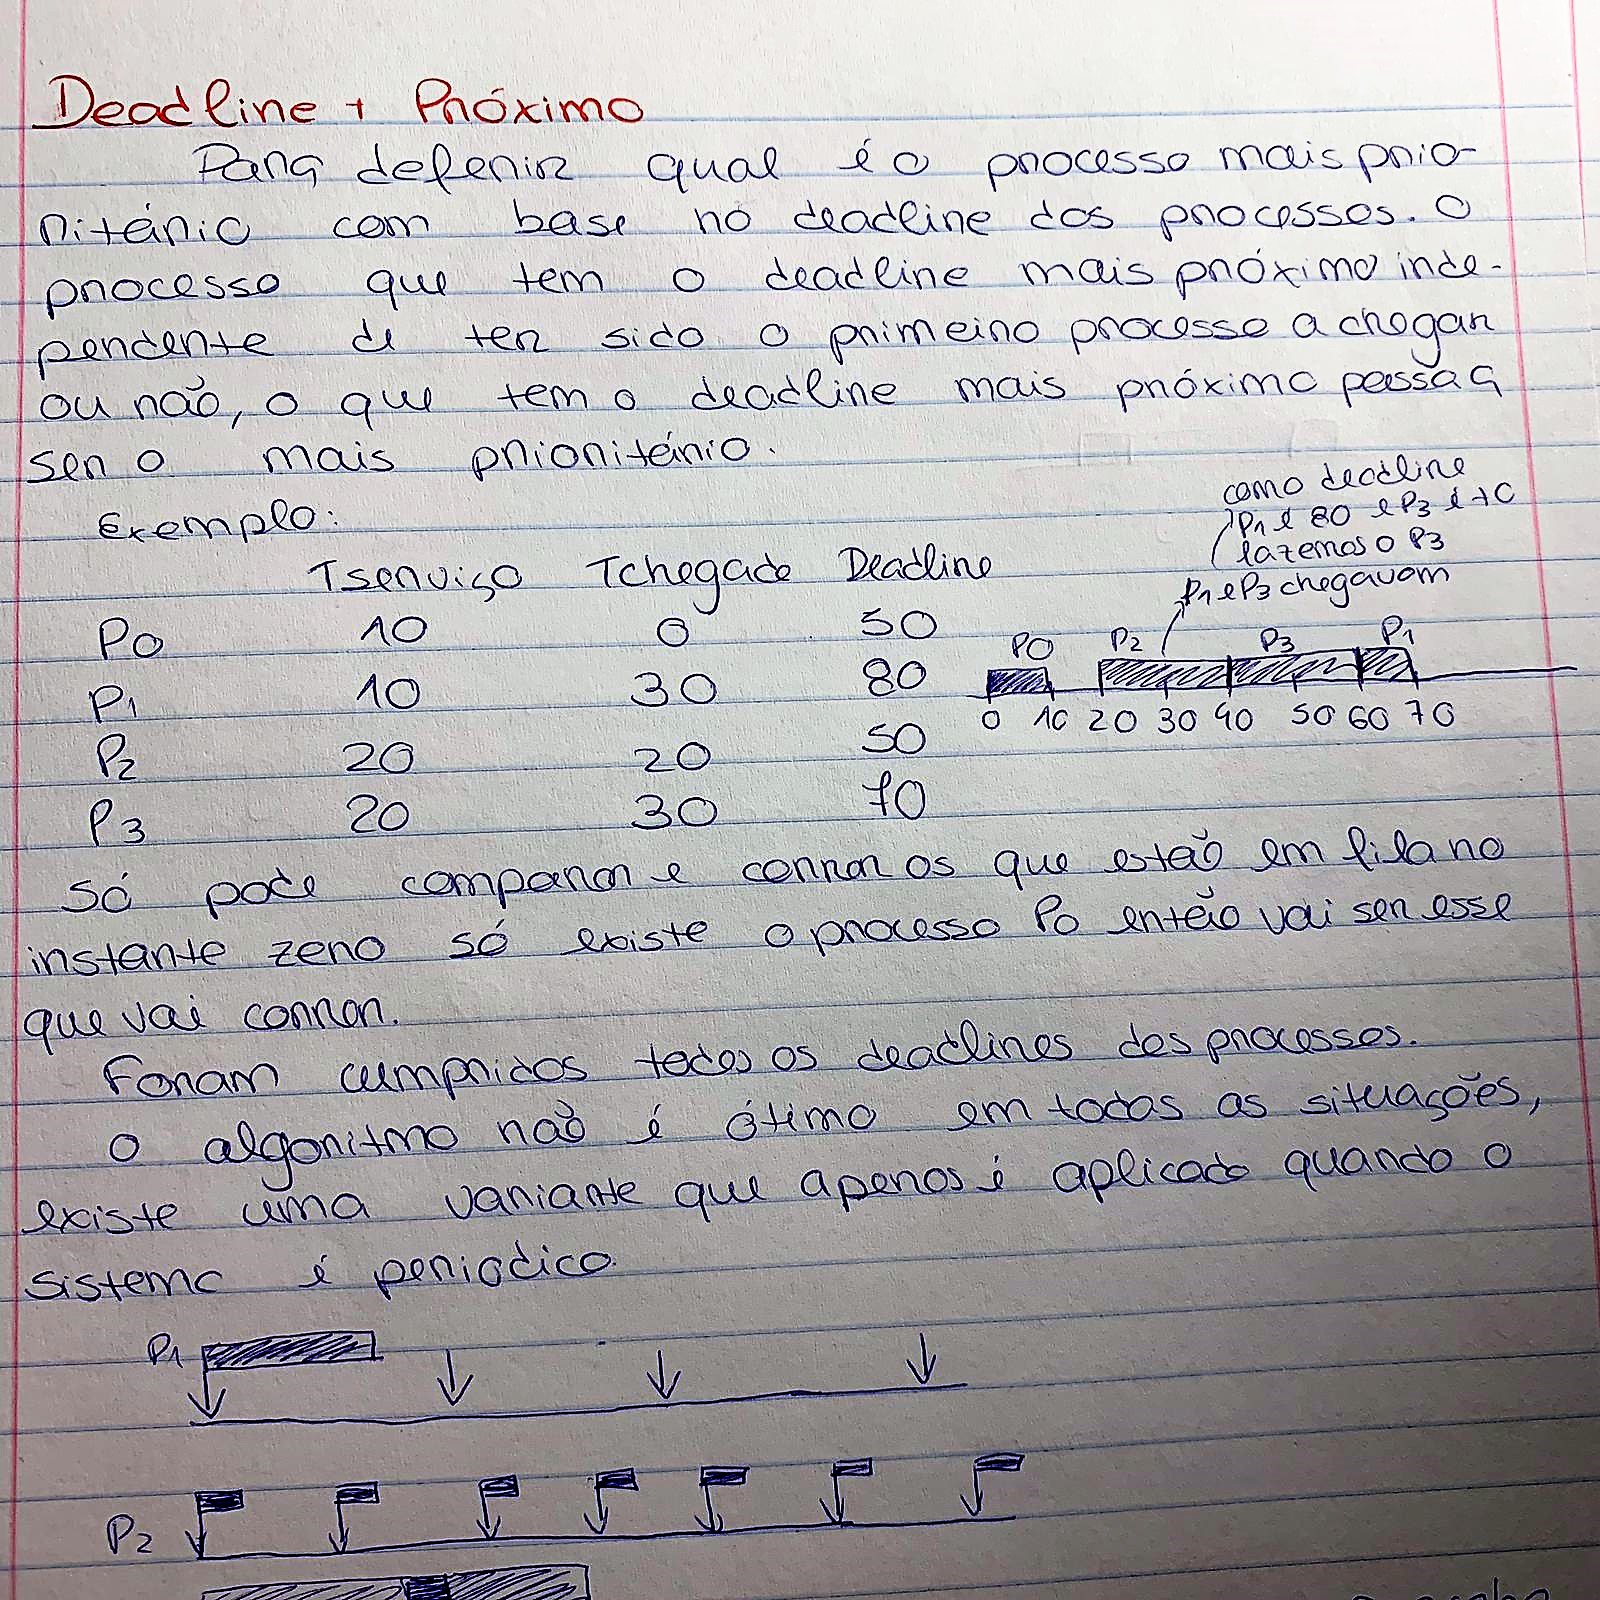 Deadline + Próximo
Para defenir qual é o processo mais prio-
ritário com base no deadline dos processos. O
processo que tem o deadline mais próximo inde-
pendente de ter sido o primeiro processo a chegar
ou não, o que tem o deadline mais próximo passa a
ser o mais prioritário.
Exemplo:
como deadline
P1 é 80 e P3 é 70
fazemos o P3
P1 e P3 chegavam
Tserviço Tchegada Deadline
P0 10 0 50
P1 10 30 80
P2 20 20 50
P3 20 30 70
P0 P2 P3 P1
0 10 20 30 40 50 60 70
Só pode comparar e correr os que estão em fila no
instante zero só existe o processo P0 então vai ser esse
que vai correr.
Foram cumpridos todos os deadlines dos processos.
O algoritmo não é ótimo em todas as situações,
existe uma variante que apenas é aplicado quando o
sistema é periodico.
P1
P2